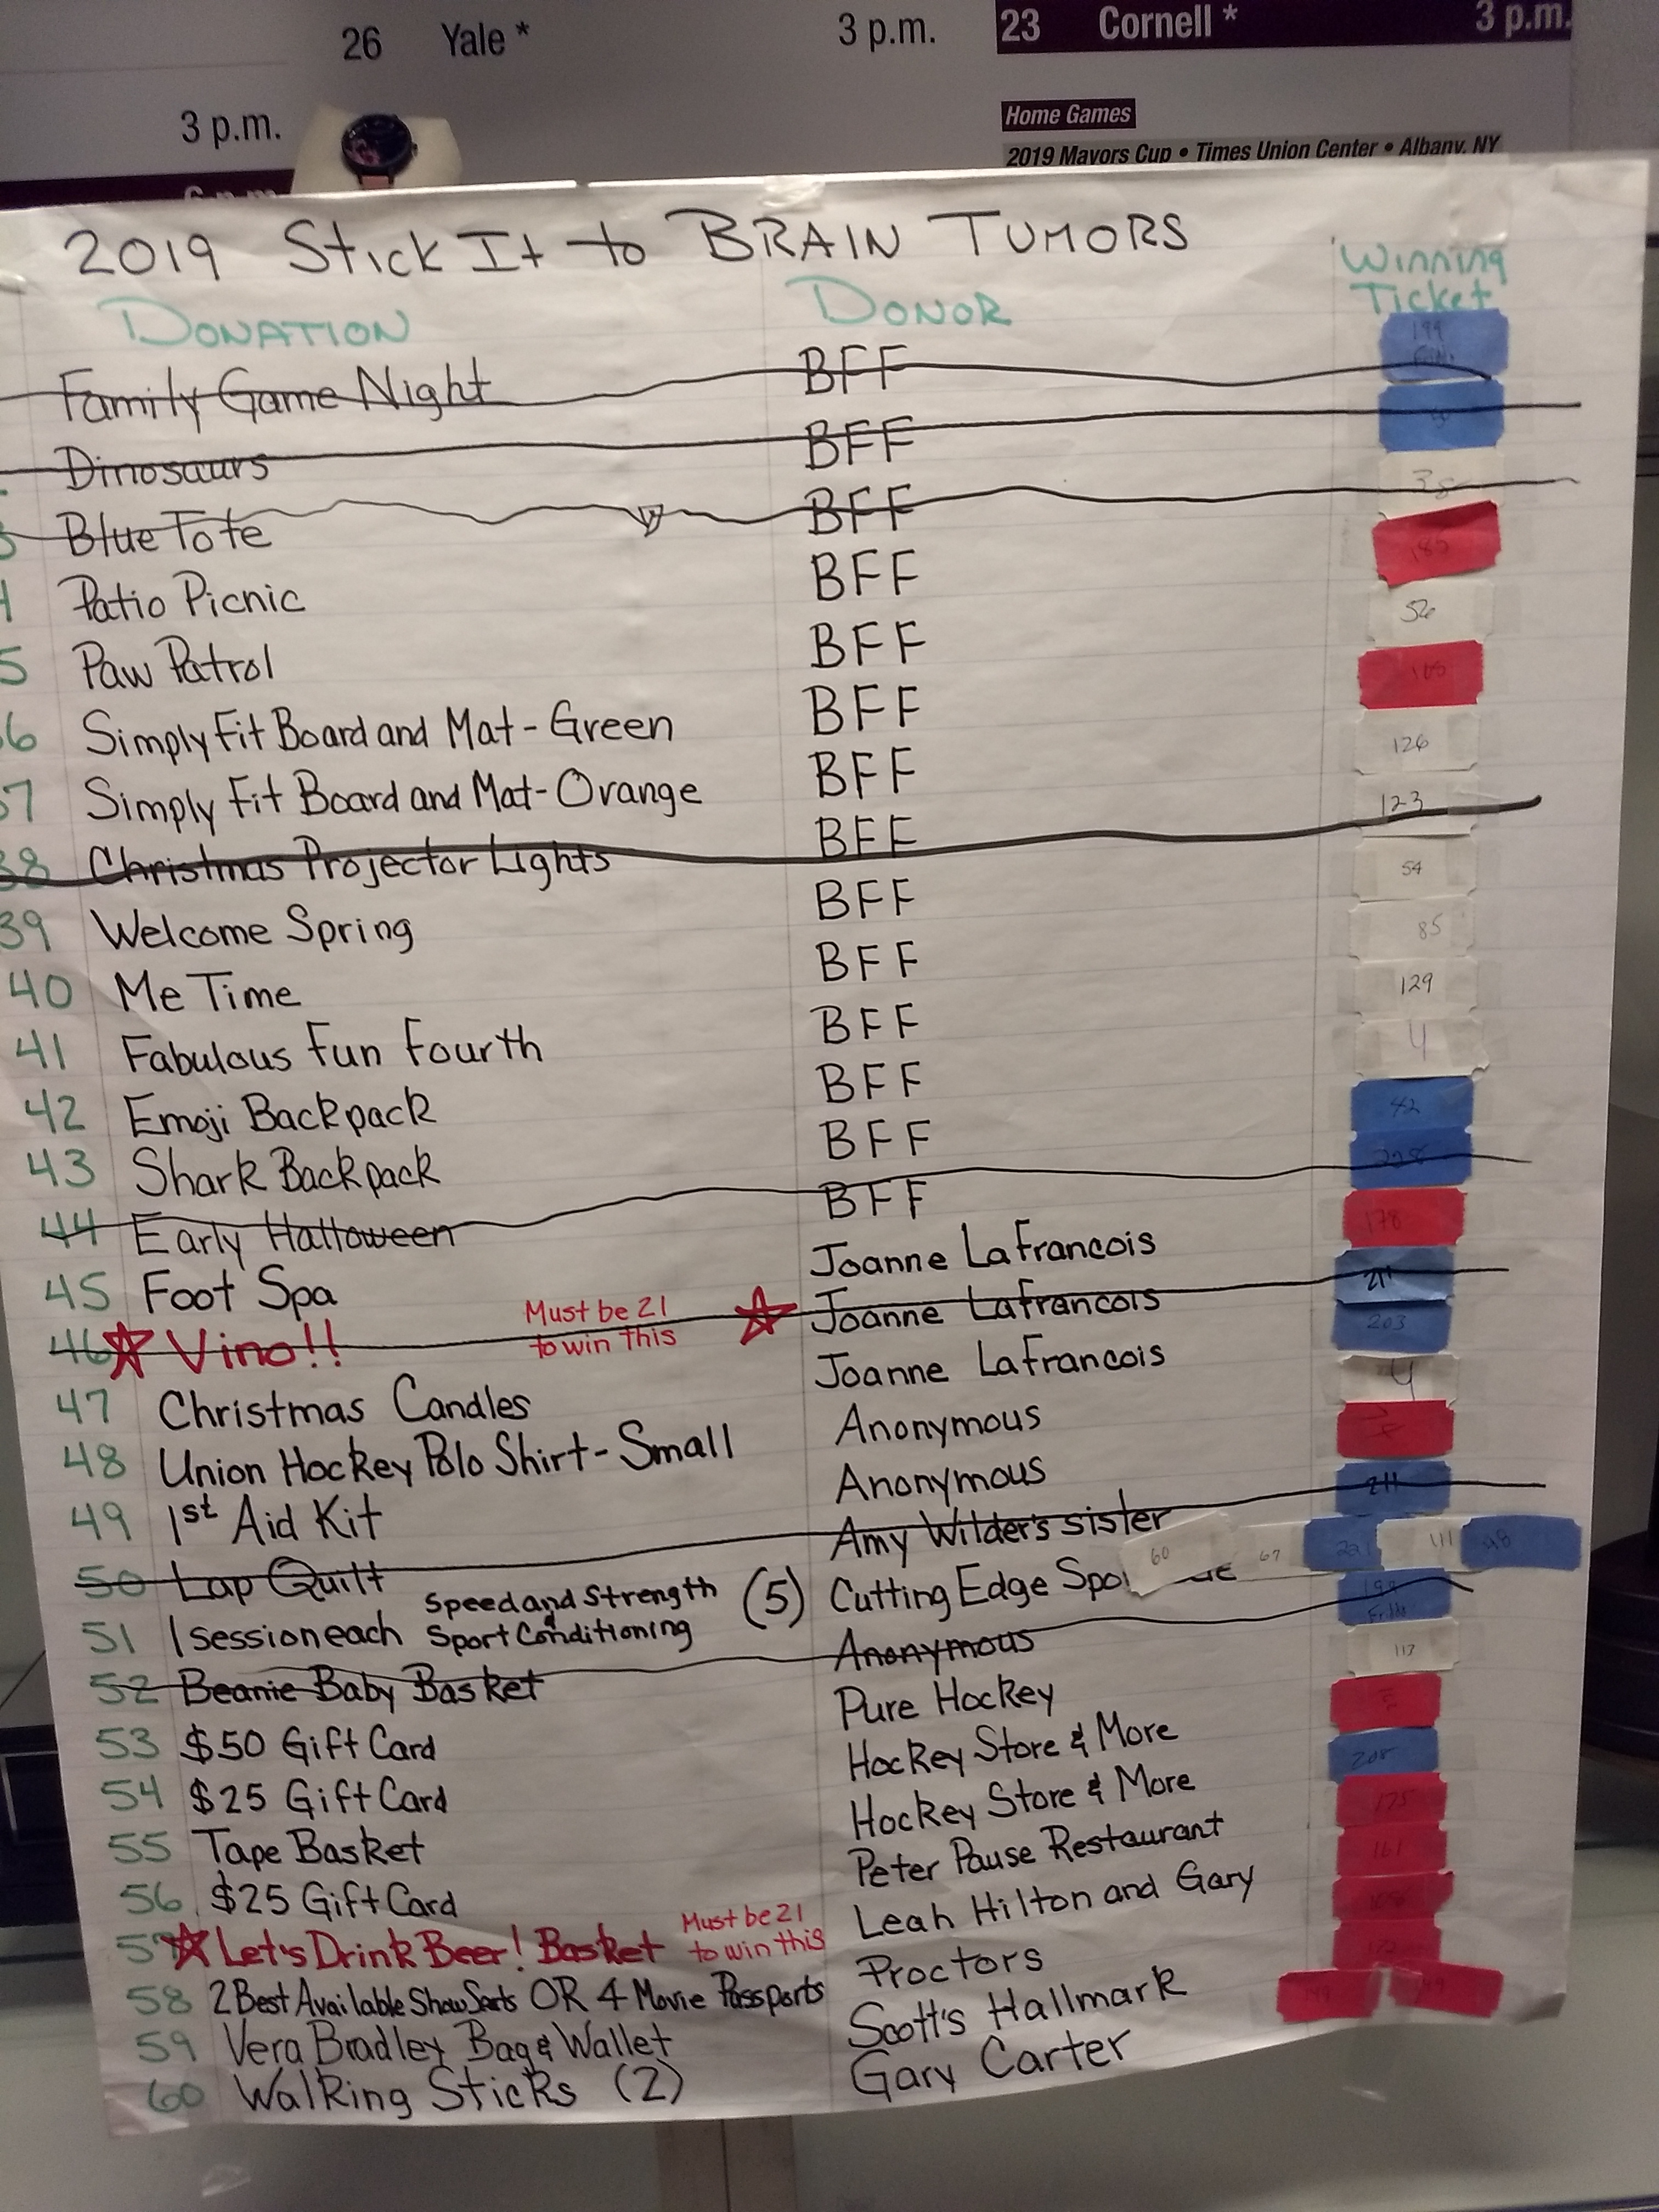 26 Yale * 3 p.m.
23 Cornell * 3 p.m.
3 p.m.
Home Games
2019 Mayors Cup • Times Union Center • Albany, NY
6 p.m.
2019 Stick It to BRAIN TUMORS
DONATION DONOR Winning
Ticket
Family Game Night BFF 199
Dinosaurs BFF
Blue Tote BFF 38
4 Patio Picnic BFF 185
5 Paw Patrol BFF 56
36 Simply Fit Board and Mat - Green BFF 165
37 Simply Fit Board and Mat - Orange BFF 126
38 Christmas Projector Lights BFF 123
39 Welcome Spring BFF 54
40 Me Time BFF 85
41 Fabulous Fun Fourth BFF 129
42 Emoji Backpack BFF 4
43 Shark Backpack BFF 42
44 Early Halloween BFF 228
45 Foot Spa Joanne LaFrancois 178
46 Vino!! Must be 21 Joanne LaFrancois 211
to win this
47 Christmas Candles Joanne LaFrancois 203
48 Union Hockey Polo Shirt - Small Anonymous 4
49 1st Aid Kit Anonymous
50 Lap Quilt Amy Wilder's sister 211
51 1 session each Speed and Strength (5) Cutting Edge 60 67 111
Sport Conditioning
52 Beanie Baby Basket Anonymous 199
53 $50 Gift Card Pure Hockey 113
54 $25 Gift Card Hockey Store & More
55 Tape Basket Hockey Store & More 208
56 $25 Gift Card Peter Pause Restaurant 175
57 Let's Drink Beer! Basket Must be 21 Leah Hilton and Gary 161
to win this
58 2 Best Available Show Seats OR 4 Movie Passports Proctors
59 Vera Bradley Bag & Wallet Scott's Hallmark 172
60 Walking Sticks (2) Gary Carter